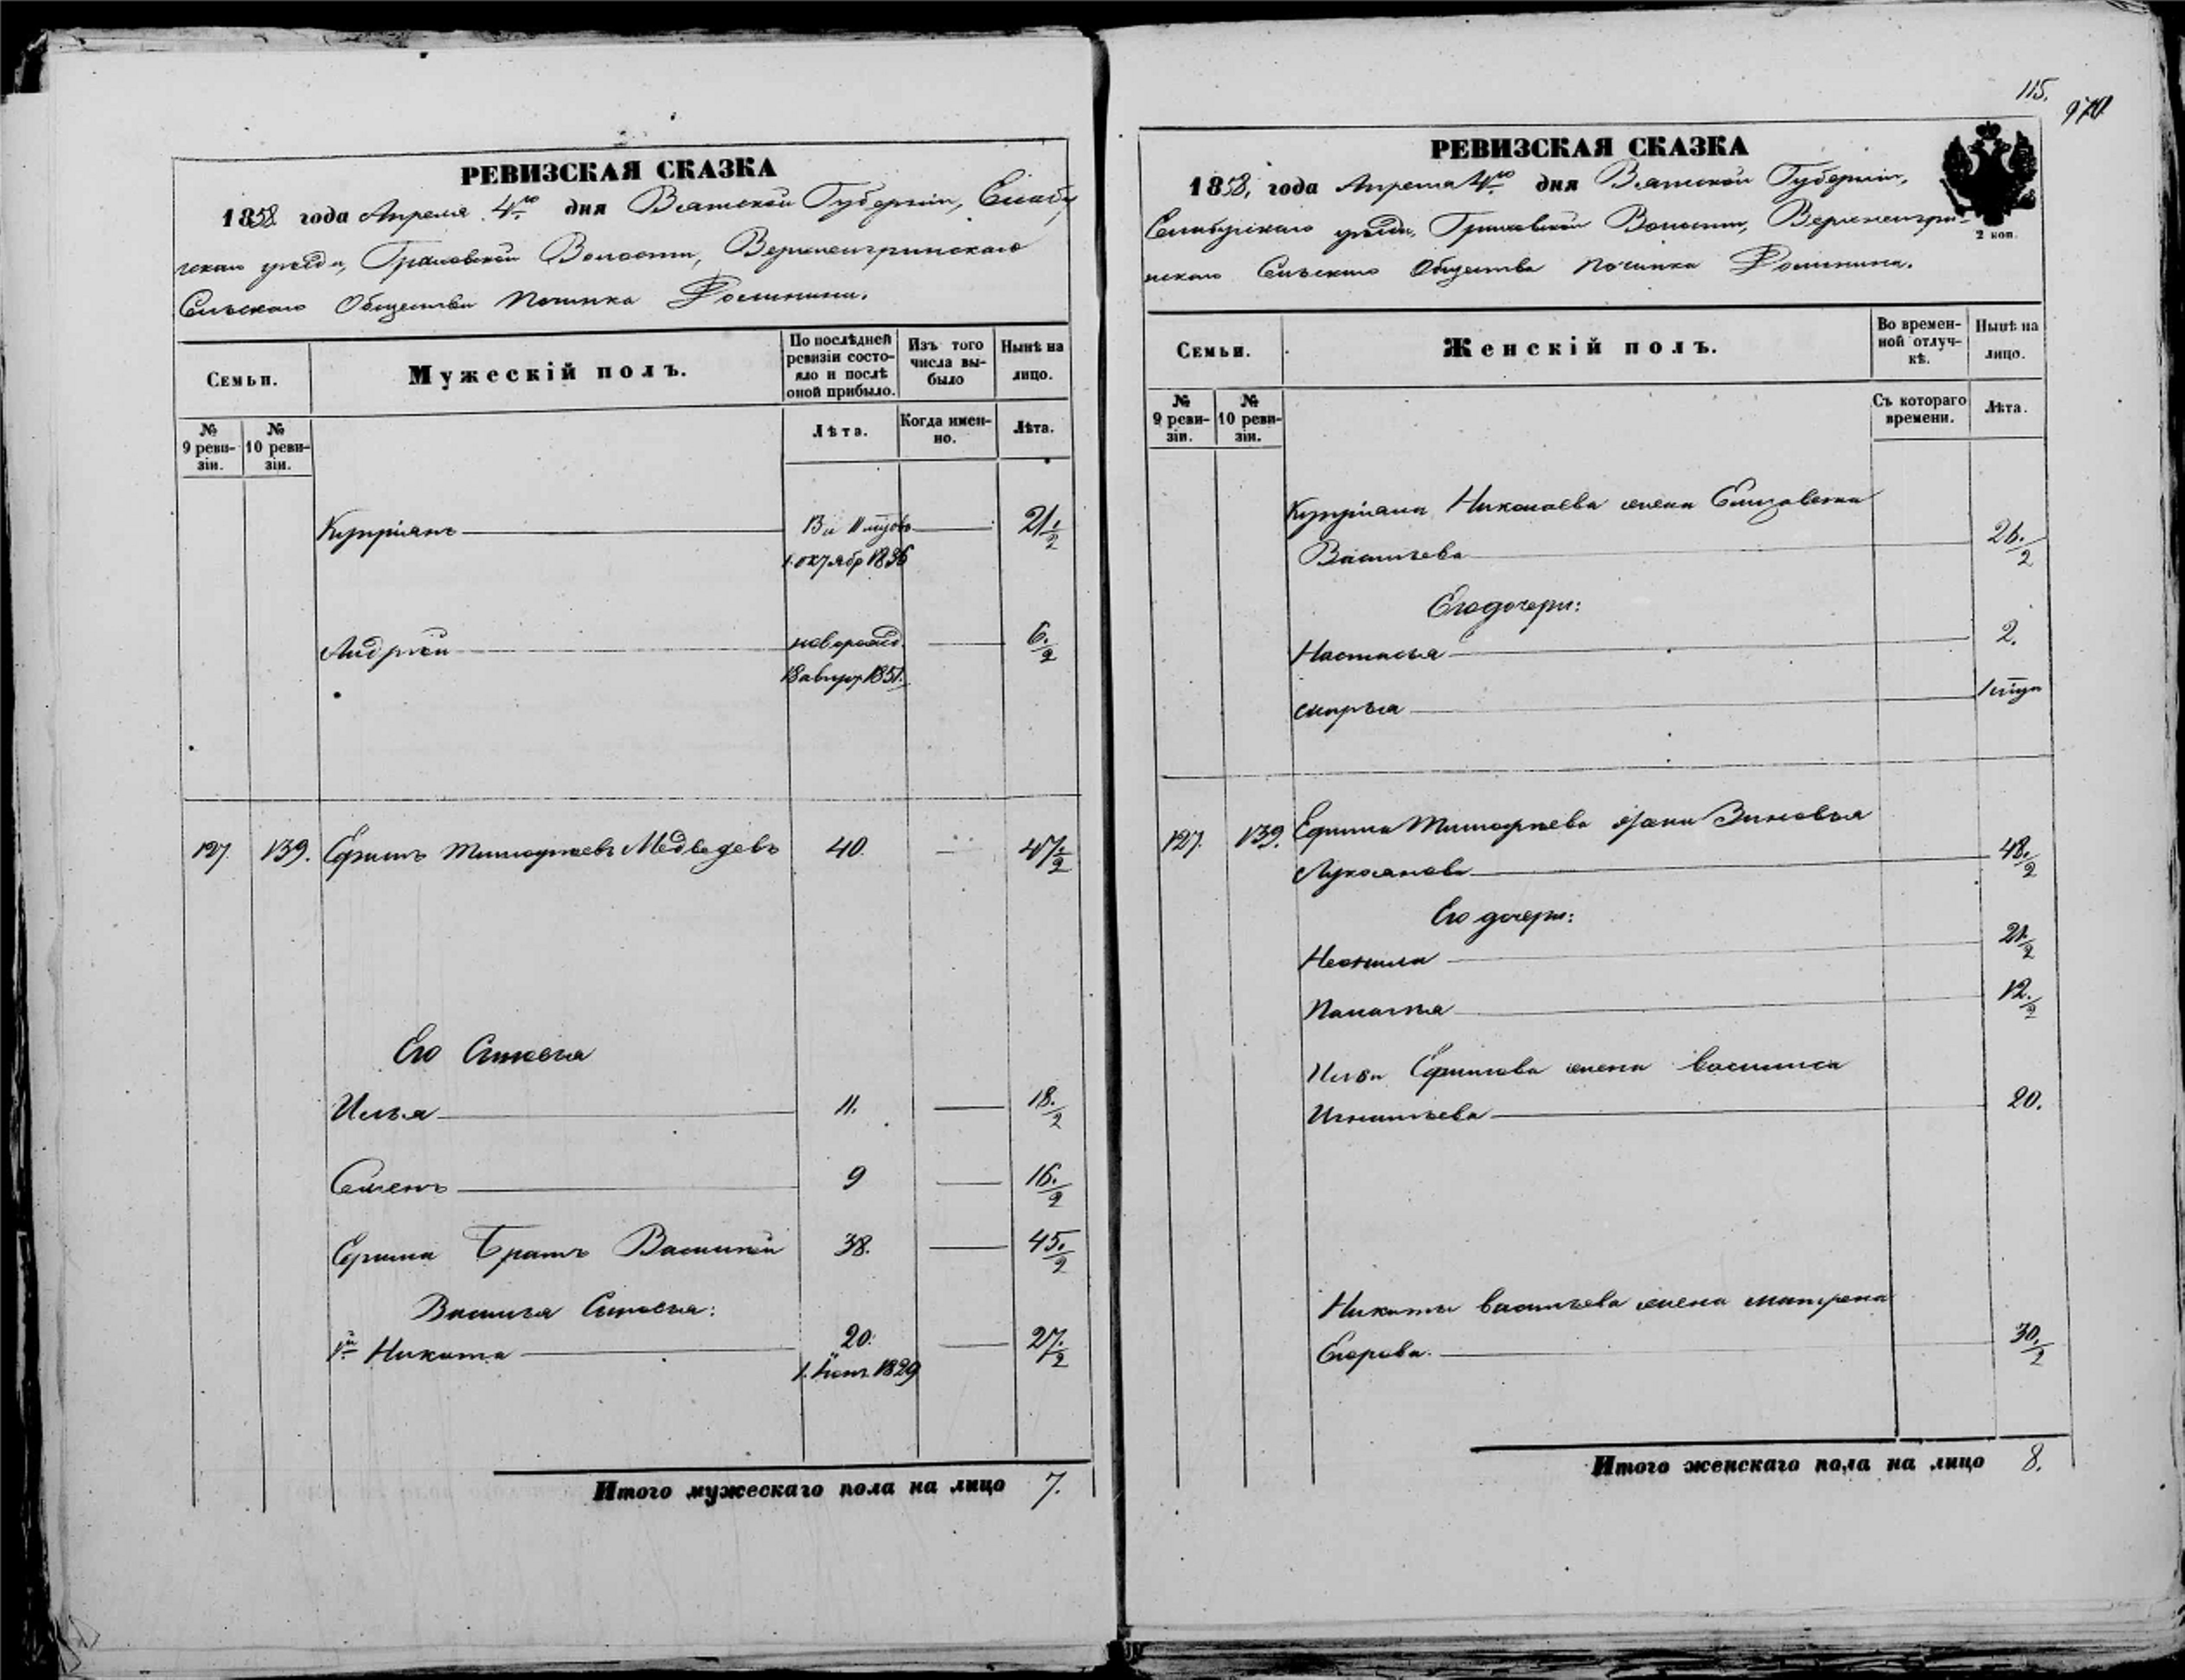 115.
970
РЕВИЗСКАЯ СКАЗКА
1858 года Апреля 4го дня Вятской Губерніи, Елабу
жскаго уѣзда, Волости, Верхнеигринскаго
Сельскаго Общества Починка
Семьи.
Мужескій полъ.
По послѣдней ревизіи состояло и послѣ оной прибыло.
Изъ того числа выбыло
Нынѣ на лицо.
№ 9 ревизіи.
№ 10 ревизіи.
Лѣта.
Когда именно.
Лѣта.
Купріянъ 21 1/2
1. октябр 1836
Андрей новорожд. 6 1/2
1851.
127. 139. Ефимъ Тимофеевъ Медведевъ 40. — 47 1/2
Его Сыновья
Илья 11. — 18 1/2
Семенъ 9 — 16 1/2
Ефима Братъ Василей 38. — 45 1/2
Василья Сыновья:
1й Никита 20. — 27 1/2
1829
Итого мужескаго пола на лицо 7.
РЕВИЗСКАЯ СКАЗКА
1858, года Апреля 4го дня Вятской Губерніи,
Елабужскаго уѣзда, Волости, Верхнеигри-
нскаго Сельскаго Общества Починка
2 коп.
Семьи.
Женскій полъ.
Во временной отлучкѣ.
Нынѣ на лицо.
№ 9 ревизіи.
№ 10 ревизіи.
Съ котораго времени.
Лѣта.
Купріяна Николаева жена Елизавета
Васильева 26 1/2
Его дочери:
Настасья 2.
Марья
127. 139. Ефима Тимофеева жена Зиновья
Лукоянова 48 1/2
Его дочери:
Неонила 21 1/2
Палагея 12 1/2
Ильи Ефимова жена Василиса
Игнатьева 20.
Никиты Васильева жена Матрена
Егорова. 30 1/2
Итого женскаго пола на лицо 8.